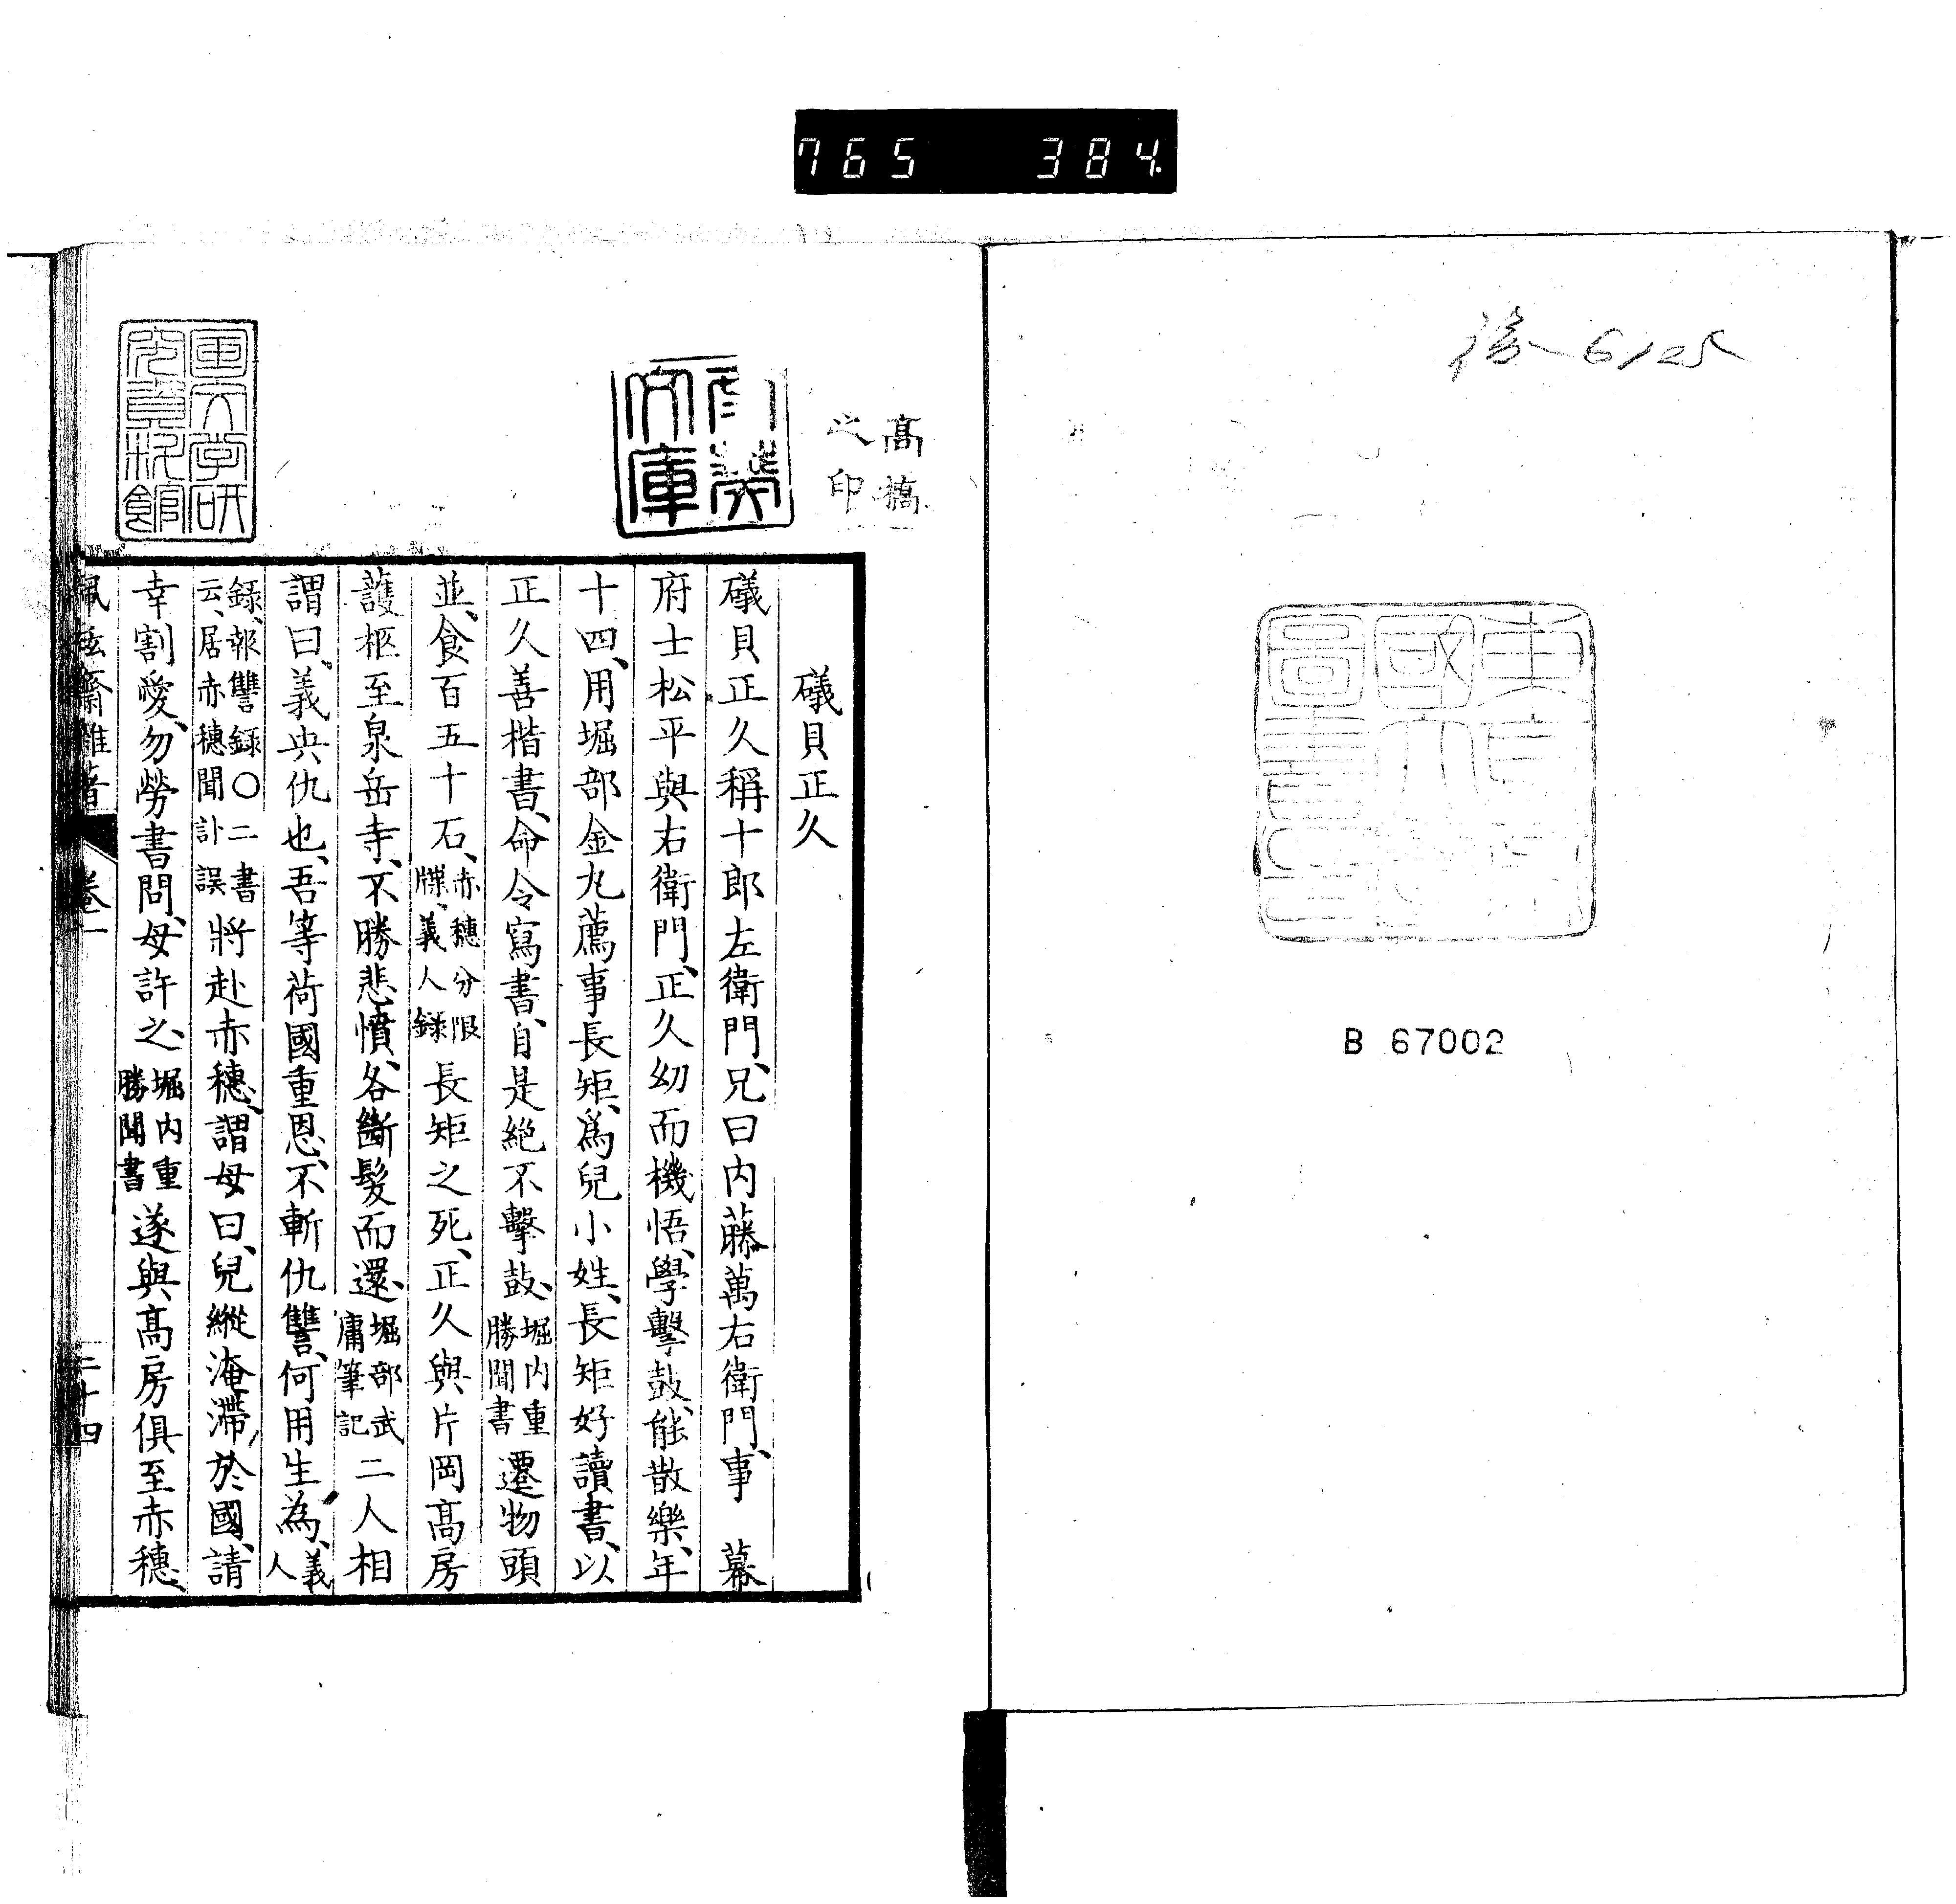 765 384.
後-6125
B 67002
高橋
之印
文庫
国文学研
究資料館
礒貝正久
礒貝正久稱十郎左衛門、兄曰内藤萬右衛門、事 幕
府士松平與右衛門、正久幼而機悟、學擊鼓、能散樂、年
十四、用堀部金丸薦事長矩、爲兒小姓、長矩好讀書、以
正久善楷書、命令寫書、自是絶不擊鼓、堀内重勝聞書遷物頭
並、食百五十石、赤穗分限牒、義人錄長矩之死、正久與片岡高房
護柩至泉岳寺、不勝悲憤、各斷髮而還、堀部武庸筆記二人相
謂曰、義央仇也、吾等荷國重恩、不斬仇讐、何用生為、義人
錄、報讐錄〇二書云、居赤穗聞訃誤將赴赤穗、謂母曰、兒縱淹滯於國、請
幸割愛、勿勞書問、母許之、堀内重勝聞書遂與高房俱至赤穗、
齋雜著 卷二 二十四